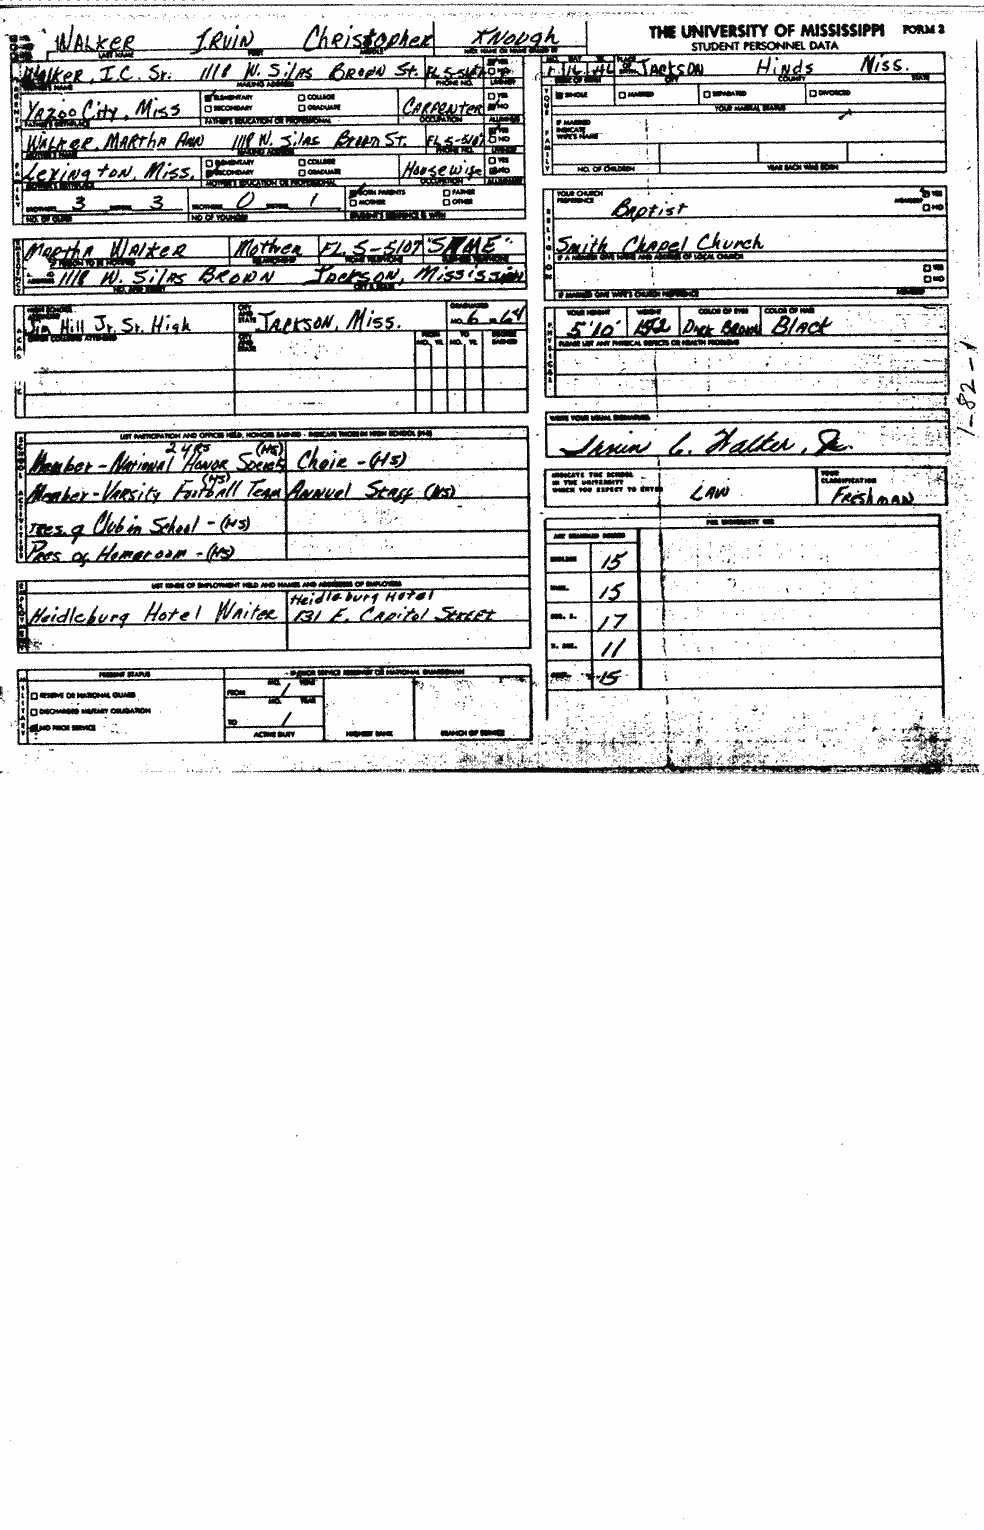 WALKER IRVIN Christopher KNOUGH
LAST NAME FIRST MIDDLE
Walker, I.C. Sr. 1118 W. Silas BROWN St. FL 5-5107 YES
MAILING ADDRESS PHONE NO.
Yazoo City, Miss ELEMENTARY COLLEGE SECONDARY GRADUATE CARPENTER YES NO
FATHER'S BIRTHPLACE FATHER'S EDUCATION OR PROFESSIONAL OCCUPATION
WALKER, MARTHA ANN 1118 W. Silas Brown St. FL 5-5107 YES NO
MOTHER'S NAME MAILING ADDRESS PHONE NO.
Lexington, Miss. ELEMENTARY COLLEGE SECONDARY GRADUATE Housewife YES NO
MOTHER'S BIRTHPLACE MOTHER'S EDUCATION OR PROFESSIONAL OCCUPATION
BROTHERS 3 SISTERS 3 BROTHERS 0 SISTERS 1 BOTH PARENTS FATHER MOTHER OTHER
NO. OF OLDER NO OF YOUNGER STUDENT'S RESIDENCE IS WITH
Martha Walker Mother FL. 5-5107 "SAME"
RELATIONSHIP HOME TELEPHONE BUSINESS TELEPHONE
ADDRESS 1118 W. Silas BROWN JACKSON, Mississippi
NO. AND STREET CITY & STATE
Jim Hill Jr. Sr. High CITY AND STATE JACKSON, Miss. GRADUATED MO. 6 64
OTHER COLLEGES ATTENDED CITY AND STATE FROM MO. YR. TO MO. YR. DEGREE EARNED
LIST PARTICIPATION AND OFFICES HELD, HONORS EARNED - INDICATE THOSE IN HIGH SCHOOL (HS)
2 YRS (HS)
Member - National Honor Society Choir - (HS)
(HS)
Member - Varsity Football Team Annual Staff (HS)
Tres. of Club in School - (HS)
Pres of Homeroom - (HS)
LIST KINDS OF EMPLOYMENT HELD AND NAMES AND ADDRESSES OF EMPLOYERS
Heidleburg Hotel
Heidleburg Hotel Waiter 131 E. Capitol Street
PRESENT STATUS
RESERVE OR NATIONAL GUARD
DISCHARGED MILITARY OBLIGATION
NO PRIOR SERVICE
FROM MO. YEAR /
TO MO. YEAR /
ACTIVE DUTY HIGHEST RANK BRANCH OF SERVICE
THE UNIVERSITY OF MISSISSIPPI FORM 2
STUDENT PERSONNEL DATA
JACKSON Hinds Miss.
DATE OF BIRTH CITY COUNTY STATE
SINGLE MARRIED SEPARATED DIVORCED
YOUR MARITAL STATUS
IF MARRIED INDICATE WIFE'S NAME
NO. OF CHILDREN YEAR EACH WAS BORN
YOUR CHURCH PREFERENCE Baptist MEMBER YES NO
Smith Chapel Church
IF A MEMBER GIVE NAME AND ADDRESS OF LOCAL CHURCH
YES NO
IF MARRIED GIVE WIFE'S CHURCH PREFERENCE MEMBER
YOUR HEIGHT WEIGHT COLOR OF EYES COLOR OF HAIR
5'10" 152 Dark Brown Black
PLEASE LIST ANY PHYSICAL DEFECTS OR HEALTH PROBLEMS
1-82-1
WRITE YOUR USUAL SIGNATURE
Irvin C. Walker, Jr.
INDICATE THE SCHOOL IN THE UNIVERSITY WHICH YOU EXPECT TO ENTER LAW YOUR CLASSIFICATION FRESHMAN
FOR UNIVERSITY USE
ENGLISH 15
MATH. 15
SOC. S. 17
N. SCI. 11
COMP. 15